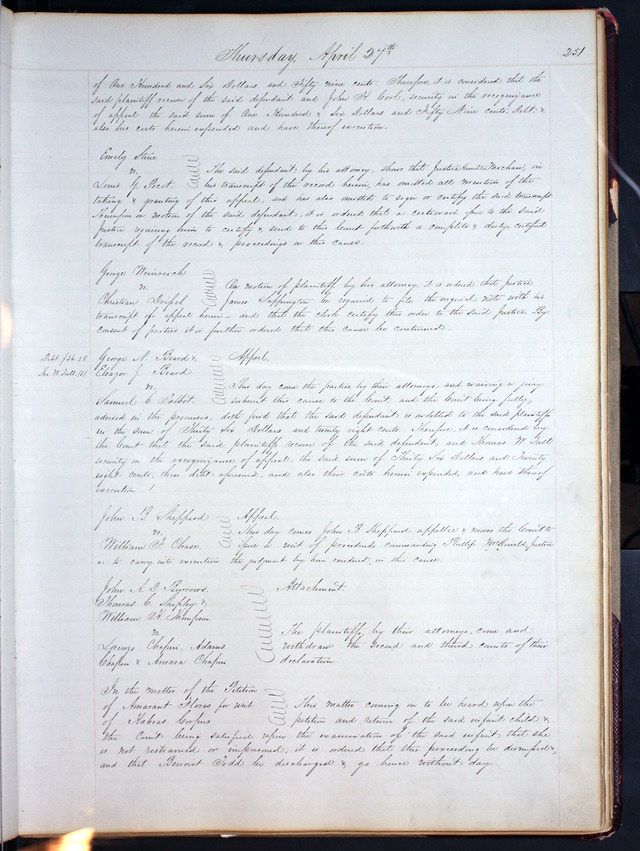 Thursday, April 27th
251
of One Hundred and Six Dollars and Fifty nine cents. Therefore, it is considered that the
said plaintiff recover of the said defendant and John H. security in the recognizance
of appeal the said sum of One Hundred & Six Dollars and Fifty Nine cents, debt &
also his costs herein expended and have thereof execution.
Emily Stine
vs.
Louis G. Picot
The said defendant, by his attorney, shows that Justice in
his transcript of the record herein, has omitted all mention of the
taking & granting of this appeal, and has also omitted to sign or certify the said transcript
Therefore on motion of the said defendant, it is ordered that a certiorari issue to the said
Justice requiring him to certify & send to this Court forthwith a complete & duly certified
transcript of the record & proceedings in this cause.
George
vs.
Christian
On motion of plaintiff by his attorney, it is ordered that Justice
James Sappington be required to file the original note with his
transcript of appeal herein - and that the clerk certify this order to the said Justice. By
consent of parties it is further ordered that this cause be continued.
Debt. $36.28
Tho. W.
George N. Beard &
Eleazor J. Beard
vs.
Samuel C. Talbot.
Appeal.
This day come the parties by their attorneys, and waiving a jury
submit this cause to the Court, and the Court being fully
advised in the premises, doth find that the said defendant is indebted to the said plaintiffs
in the sum of Thirty Six Dollars and twenty eight cents. Therefore, it is considered by
the Court that the said plaintiffs recover of the said defendant, and Thomas W.
security in the recognizance of appeal, the said sum of Thirty Six Dollars and Twenty
eight cents, their debt aforesaid, and also their costs herein expended, and have thereof
execution.
John B. Sheppard
vs.
William H. Chase.
Appeal.
This day comes John B. Sheppard appellee & moves the Court to
issue a writ of procedendo commanding Phillip McDonald, Justice
&c to carry into execution the judgment by him rendered, in this cause.
John A. D. Burrows
Thomas C. Shipley &
William H. Thompson
vs.
Lorenzo Chapin, Adams
Chapin & Amasa Chapin
Attachment.
The plaintiffs, by their attorneys, come and
withdraw the second and third counts of their
declaration.
In the matter of the Petition
of Amarant Flores for writ
of Habeas Corpus
This matter coming on to be heard upon the
petition and return of the said infant child &
the Court being satisfied upon the examination of the said infant that she
is not restrained or imprisoned, it is ordered that this proceeding be dismissed,
and that Benoist Todd be discharged & go hence without day.